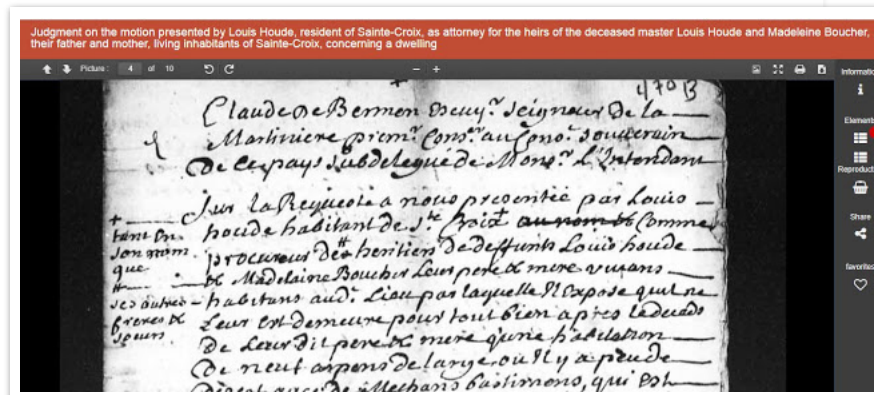 Judgment on the motion presented by Louis Houde, resident of Sainte-Croix, as attorney for the heirs of the deceased master Louis Houde and Madeleine Boucher,
their father and mother, living inhabitants of Sainte-Croix, concerning a dwelling
Picture: 4 of 10
Informatio
Elements
Reproduct
Share
favorites
470 B
Claude De Bermen Escuyr. Seigneur De la
Martiniere premr. Consr. au Conol. Souverain
De ce pays Subdelegué de Monsr. L'Intendant
Sur la Requeste a nous presentée par Louis
houde habitant de Ste. Croix au nom & Comme
procureur Des heritiers De deffunts Louis houde
& Madelaine Boucher Leur pere & mere vivans
habitans aud. Lieu par laquelle Il expose quil ne
Leur est demeuré pour tout bien apres le deceds
De Leur dit pere & mere qu'une habitation
De neuf arpens de large, ou Il y a peu de
de Mechans bastimens, qui est
+ tant En
son nom
que
ses autres
freres &
soeurs